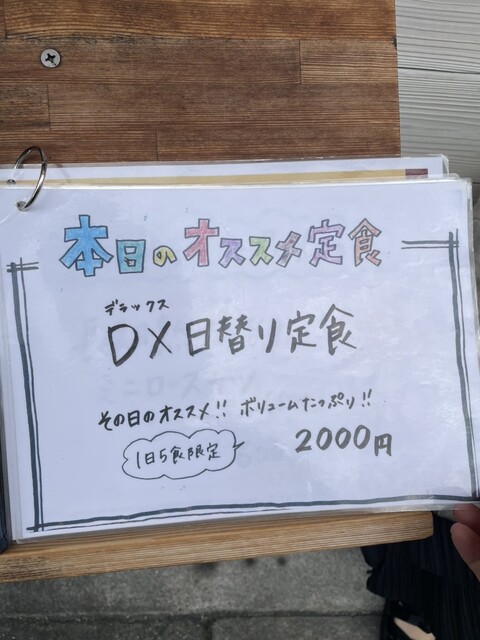 本日のオススメ定食
デラックス
DX日替り定食
その日のオススメ!! ボリュームたっぷり!!
1日5食限定
2000円